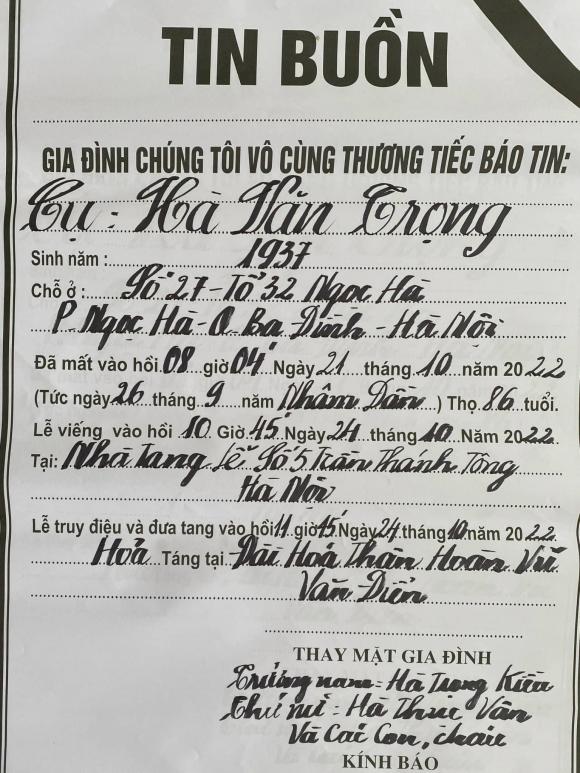 TIN BUỒN
GIA ĐÌNH CHÚNG TÔI VÔ CÙNG THƯƠNG TIẾC BÁO TIN:
Cụ: Hà Văn Trọng
Sinh năm: 1937
Chỗ ở: Số 27 - Tổ 32 Ngọc Hà
P Ngọc Hà - Q Ba Đình - Hà Nội
Đã mất vào hồi 08 giờ 04' Ngày 21 tháng 10 năm 2022
(Tức ngày 26 tháng 9 năm Nhâm Dần) Thọ 86 tuổi.
Lễ viếng vào hồi 10 Giờ 45' Ngày 24 tháng 10 Năm 2022
Tại: Nhà Tang Lễ Số 5 Trần Thánh Tông
Hà Nội
Lễ truy điệu và đưa tang vào hồi 11 giờ 15' Ngày 24 tháng 10 năm 2022
Hoả Táng tại Đài Hoá Thân Hoàn Vũ
Văn Điển
THAY MẶT GIA ĐÌNH
Trưởng nam: Hà Trọng Kiên
Thứ nữ: Hà Thục Vân
Và Các Con, cháu
KÍNH BÁO